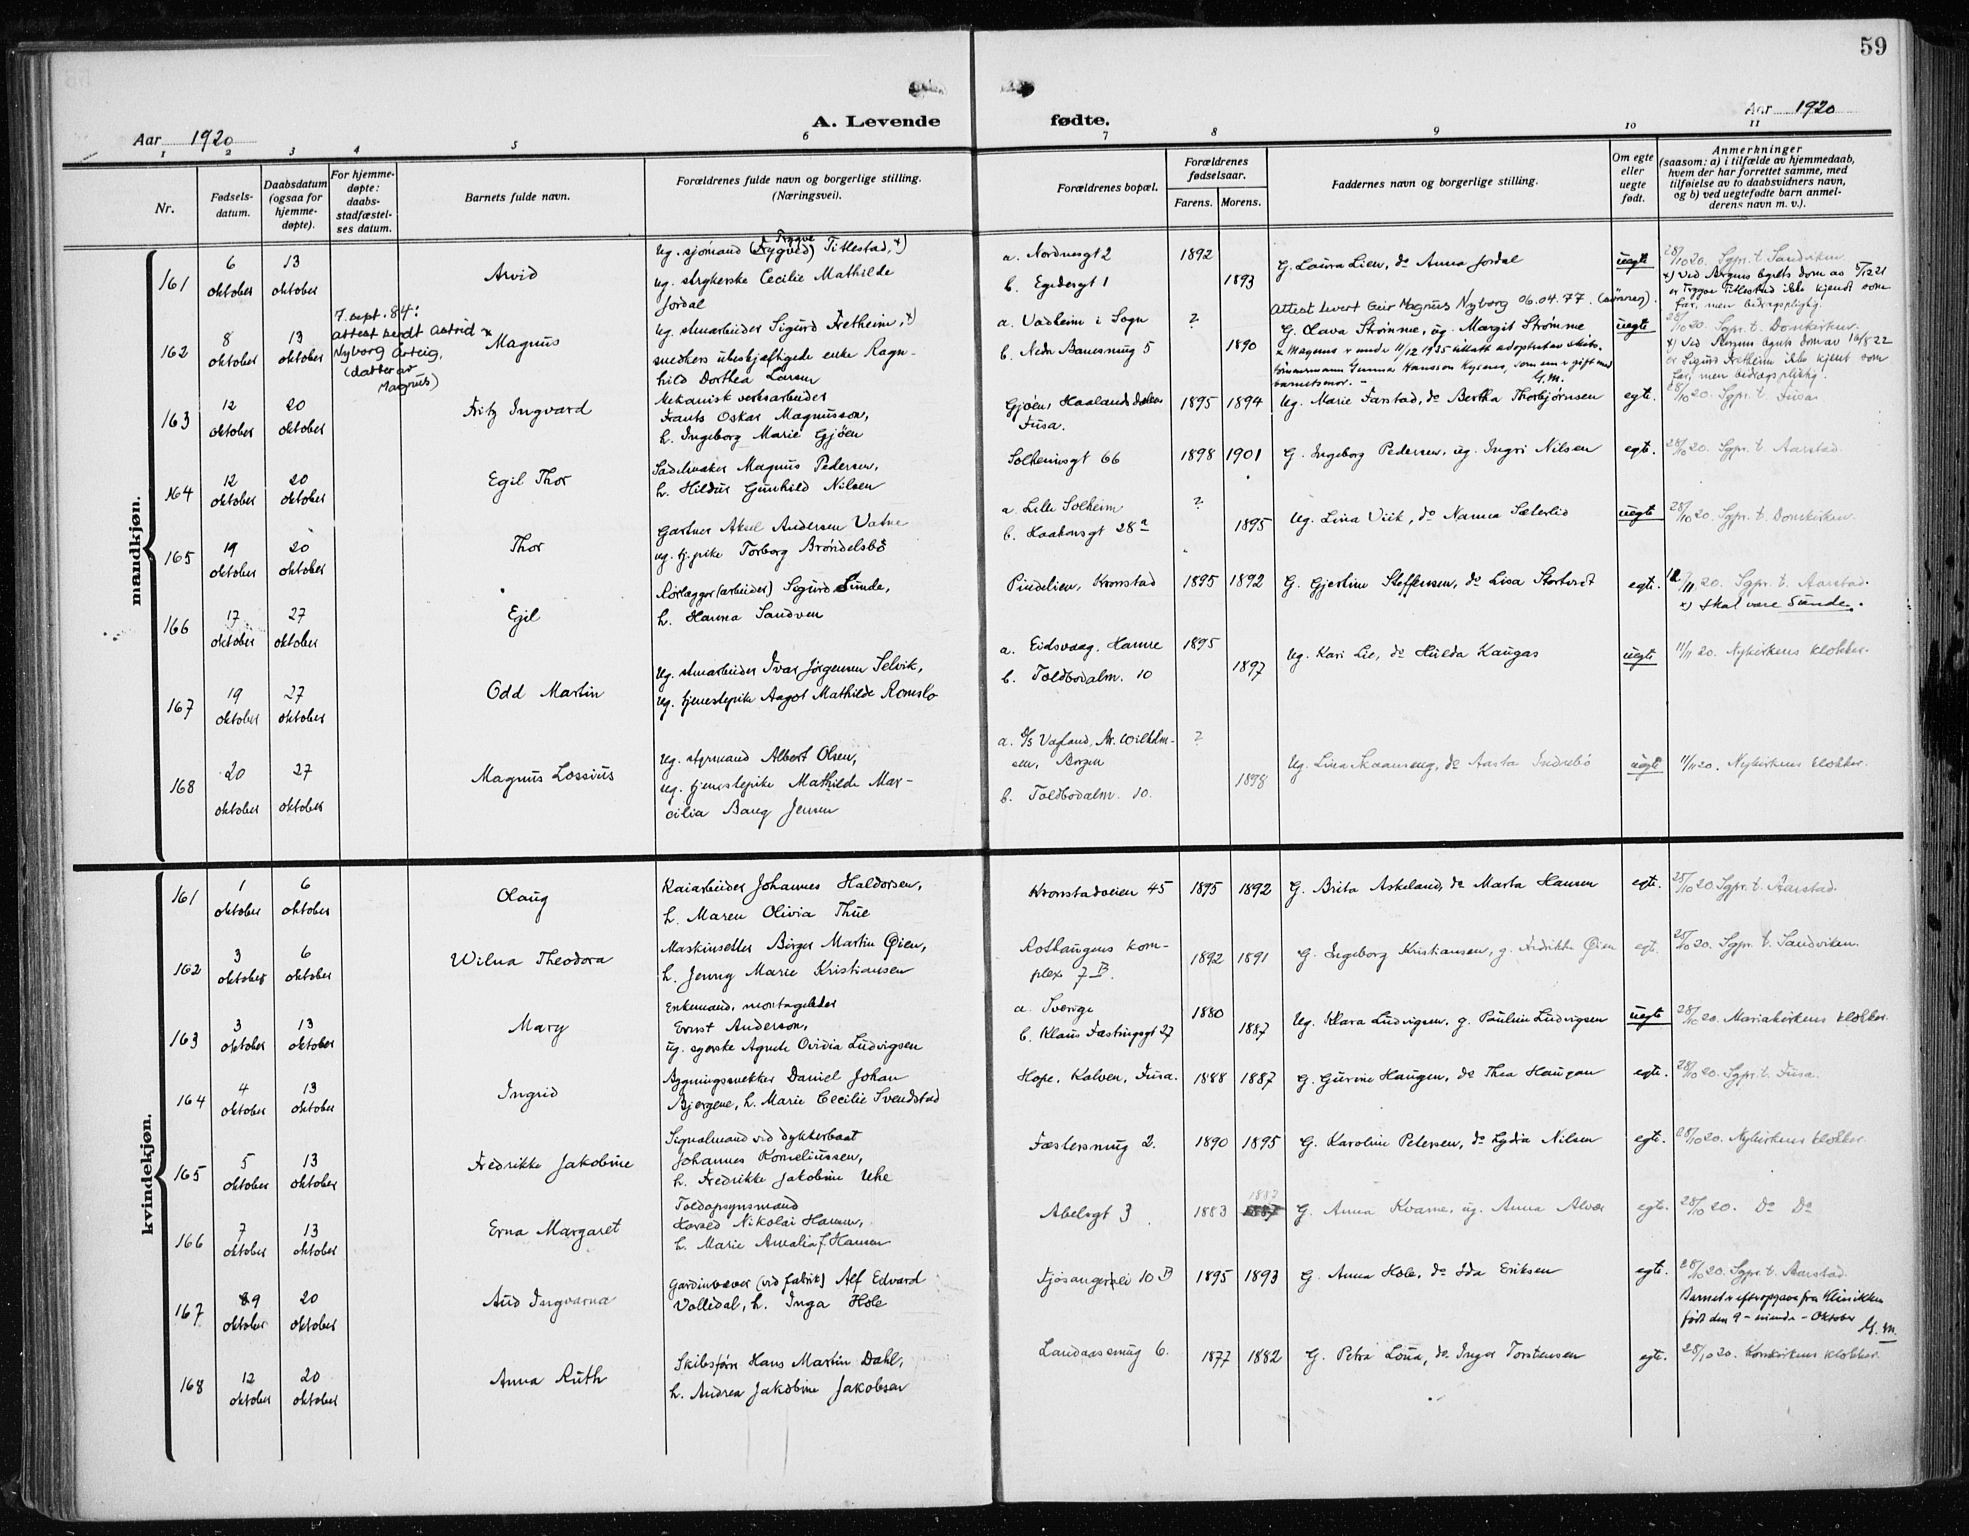 59
A. Levende fødte.
Aar 1920
Aar 1920
1 2 3 4 5 6 7 8 9 10 11
Nr.
Fødsels-
datum.
Daabsdatum
(ogsaa for
hjemme-
døpte).
For hjemme-
døpte:
daabs-
stadfæstel-
ses datum.
Barnets fulde navn.
Forældrenes fulde navn og borgerlige stilling.
(Næringsvei).
Forældrenes bopæl.
Forældrenes
fødselsaar.
Farens. Morens.
Faddernes navn og borgerlige stilling.
Om egte
eller
uegte
født.
Anmerkninger
(saasom: a) i tilfælde av hjemmedaab,
hvem der har forrettet samme, med
tilføielse av to daabsvidners navn,
og b) ved uegtefødte barn anmel-
derens navn m. v.).
mandkjøn.
161
6 oktober
13 oktober
Arvid
Ug. sjømand (Trygve) Titlestad, x)
ug. strykerske Cecilie Mathilde
Jordal
a. Nordnesgt 2
b. Egedesgt 1
1892
1893
G. Laura Lien, do Anna Jordal
uegte
28/10 20. Sgpr. t. Sandviken
x) Ved Bergens byrets dom av
er Trygve Titlestad ikke kjendt som
far, men bidragspligtig.
162
8 oktober
13 oktober
7. sept. 84:
attest sendt Astrid
Nyborg Arteig,
(datter av
Magnus)
Magnus
Ug. stuearbeider Sigurd Fretheim, x)
snedkers ubeskjæftigede enke Ragn-
hild Dorthea Larsen
a. Vadheim i Sogn
b. Nedre Banesmug 5
?
1890
Attest levert Geir Magnus Nyborg 06.04.77.
G. Olava Strømme, ug. Margit Strømme
x Magnus er under 11/12 1935 tillatt adoptert av skibs-
tømmermann Gunnar Hansson Nyborg, som er gift med
barnets mor. -
G.M.
uegte
28/10 20. Sgpr. t. Domkirken.
x) Ved Bergens byrets dom av 16/8 22
er Sigurd Fretheim ikke kjent som
far, men bidragspligtig.
163
12 oktober
20 oktober
Fritz Ingvard
Mekanisk verksarbeider
Frants Oskar Magnusson,
h. Ingeborg Marie Gjøen
Gjøen, Haalandsdalen
Fusa.
1895 1894
Ug. Marie Farstad, do Bertha Thorbjørnsen
egte.
28/10 20. Sgpr. t. Fusa
164
12 oktober
20 oktober
Egil Thor
Sadelmaker Magnus Pedersen,
h. Hildur Gunhild Nilsen
Solheimsgt 66
1898 1901
G. Ingeborg Pedersen, ug. Ingri Nilsen
egte.
28/10 20. Sgpr. t. Aarstad.
165
19 oktober
20 oktober
Thor
Gartner Aksel Andersen Vatne
ug. tj.pike Torborg Brøndelsbø
a. Lille Solheim
b. Haakonsgt 28 a
?
1895
Ug. Lina Viik, do Nanna Sæterlid
uegte
28/10 20. Sgpr. t. Domkirken.
166
17 oktober
27 oktober
Egil
Rørlegger (arbeider) Sigurd Sunde,
h. Hanna Sandven
Pindelien, Kronstad
1895 1892
G. Gjertine Steffensen, do Lisa Stortveit
egte.
11 20. Sgpr. t. Aarstad.
x) Skal være Sunde.
167
19 oktober
27 oktober
Odd Martin
Ug. stuearbeider Ivar Jørgensen Selvik,
ug. tjenestepike Aagot Mathilde Romslo
a. Eidsvaag, Hamre
b. Toldbodalm. 10
1895
1897
Ug. Kari Lie, do Hulda Kaugas
uegte
11/11 20. Nykirkens klokker.
168
20 oktober
27 oktober
Magnus Lossius
Ug. styrmand Albert Olsen,
ug. tjenestepike Mathilde Mar-
cilia Bang Jensen
a. Vafland, Wilhelm-
sen, Bergen
b. Toldbodalm. 10.
?
1898
Ug. Lina Skaanseng, do Aasta Indrebø
uegte
11/11 20. Nykirkens klokker.
kvindekjøn.
161
1 oktober
6 oktober
Olaug
Kaiarbeider Johannes Haldorsen,
h. Maren Olivia Thue
Kronstadveien 45
1895 1892
G. Brita Askeland, do Marta Hansen
egte.
28/10 20 Sgpr. t. Aarstad.
162
3 oktober
6 oktober
Wilna Theodora
Maskinsetter Birger Martin Øien,
h. Jenny Marie Kristiansen
Rothaugens kom-
plex 7 B.
1892 1891
G. Ingeborg Kristiansen, g. Fredrikke Øien
egte.
28/10 20. Sgpr. t. Sandviken.
163
3 oktober
13 oktober
Mary
Enkemand, montageleder
Ernst Anderson,
ug. syerske Agnete Ovidia Ludvigsen
a. Sverige
b. Klaus Fæstningsgt 27
1880
1887
Ug. Klara Ludvigsen, g. Pauline Ludvigsen
uegte
28/10 20. Mariakirkens klokker.
164
4 oktober
13 oktober
Ingrid
Bygningssnekker Daniel Johan
Bjergene, h. Marie Cecilie Svendstad
Hope, Kalven, Fusa.
1888 1887
G. Gurine Haugen, do Thea Haugan
egte.
28/10 20. Sgpr. t. Fusa.
165
5 oktober
13 oktober
Fredrikke Jakobine
Signalmand ved dykkerbaat
Johannes Korneliussen,
h. Fredrikke Jakobine Uhe
Fæstersmug 2.
1890 1895
G. Karoline Petersen, do Lydia Nilsen
egte.
28/10 20. Nykirkens klokker.
166
7 oktober
13 oktober
Erna Margaret
Toldopsynsmand
Harald Nikolai Hansen,
h. Marie Amalia f. Hansen
Abelsgt 3.
1883 1887
G. Anna Kvame, ug. Anna Alvær
egte.
28/10 20. Do Do
167
9 oktober
20 oktober
Aud Ingvarna
Gardinvæver (ved fabrik) Alf Edvard
Vollidal, h. Inga Hole
Fjøsangervei 10 B
1895 1893
G. Anna Hole, do Ida Eriksen
egte.
28/10 20. Sgpr. t. Aarstad.
Barnet er efter opgave fra Klinikken
født den 9 - niende - Oktober
G.M.
168
12 oktober
20 oktober
Anna Ruth
Skibsfører Hans Martin Dahl,
h. Andrea Jakobine Jakobsen
Landaassmug 6.
1877 1882
G. Petra Loua, do Inger Torstensen
egte.
28/10 20. Korskirkens klokker.